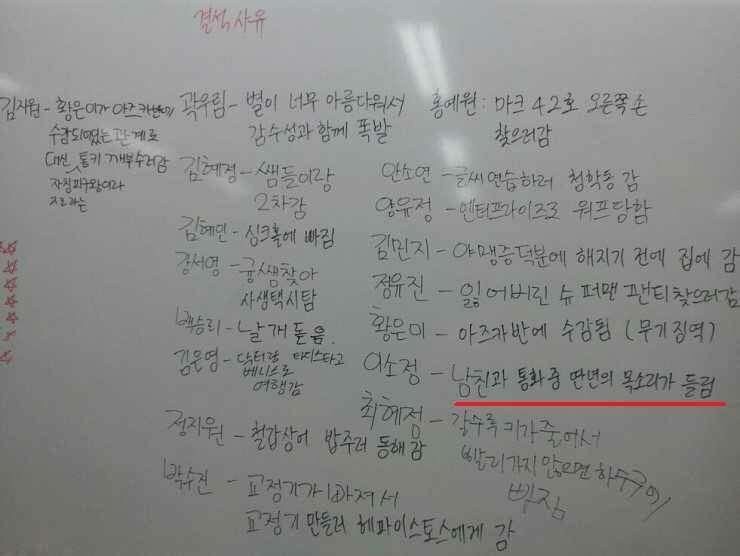 결석사유
김지원 - 황은미가 아즈카반에
수감되었는 관계로
대신 통키 깨부수러감
자칭 피구왕이라
곽우림 - 별이 너무 아름다워서
감수성과 함께 폭발
홍예원 : 마크 42호 오른쪽 손
찾으러감
김혜정 - 쌤들이랑
2차감
안소연 - 글씨연습하러 청학동 감
양유정 - 엔터프라이즈로 워프당함
김혜민 - 싱크홀에 빠짐
김민지 - 야맹증덕분에 해지기 전에 집에 감
강서영 - 귱쌤찾아
사생택시탐
정유진 - 잃어버린 슈퍼맨 팬티찾으러감
백승리 - 날개 돋음.
황은미 - 아즈카반에 수감됨 (무기징역)
김윤영 - 닥터랑 타디스타고
베니스로
여행감
이소정 - 남친과 통화중 딴년의 목소리가 들림
정지원 - 철갑상어 밥주러 동해감
최혜정 - 갈수록 키가 줄어서
빨리가지 않으면 하수구에
빠짐
박수진 - 교정기가 빠져서
교정기 만들러 헤파이스토스에게 감